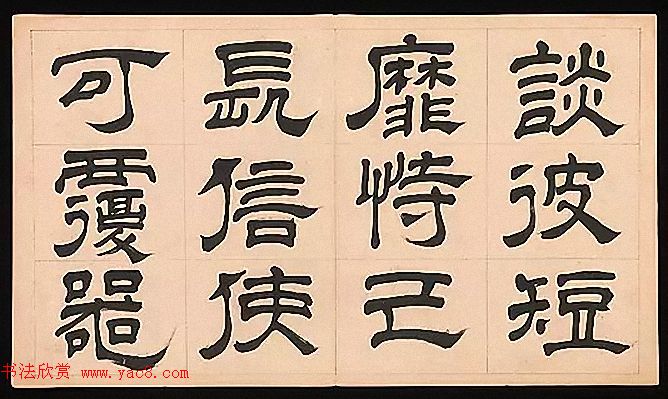 談彼短
靡恃己
長信使
可覆器
书法欣赏 www.yac8.com